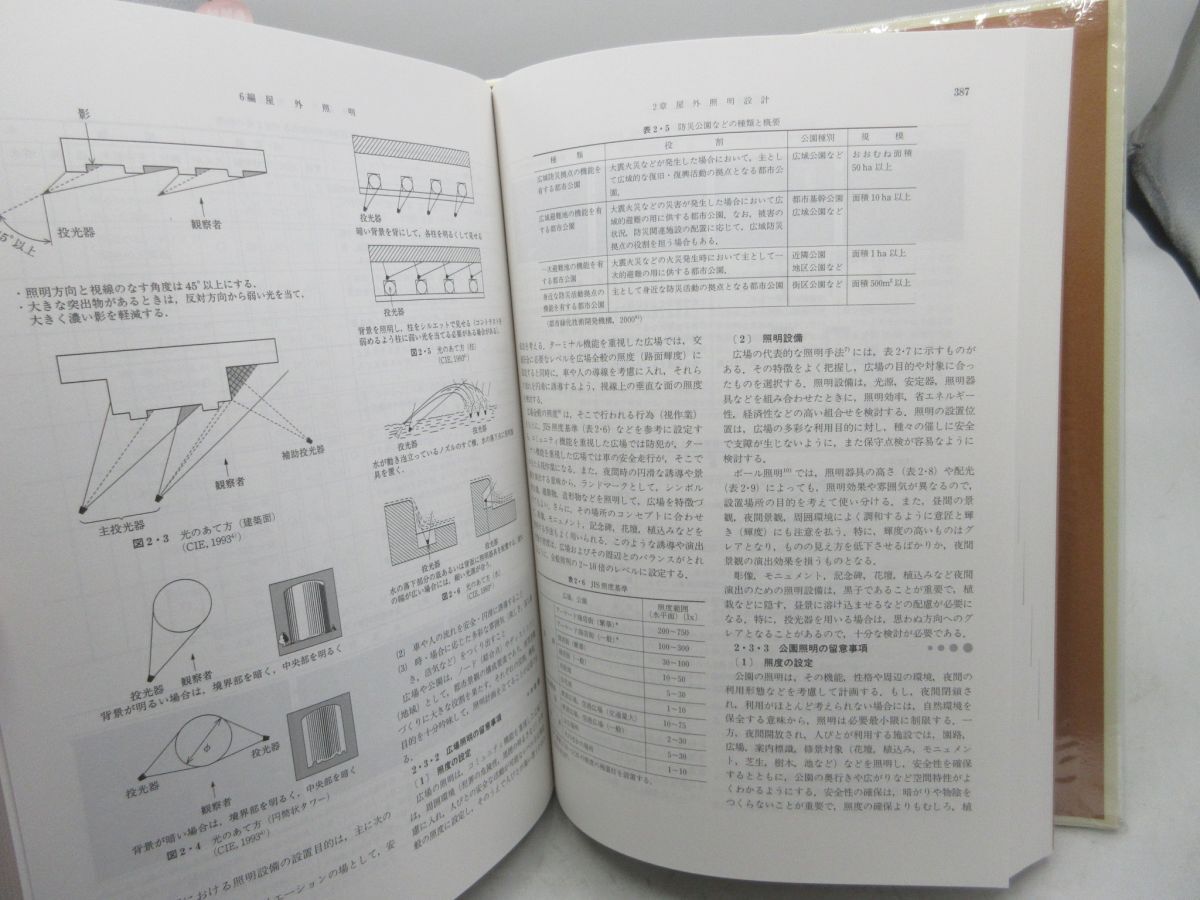 6編 屋外照明
影
45°以上
投光器
観察者
・照明方向と視線のなす角度は45°以上にする．
・大きな突出物があるときは，反対方向から弱い光を当て，
大きく濃い影を軽減する．
補助投光器
観察者
主投光器
図2・3 光のあて方（建築面）
(CIE, 1993⁴⁾)
投光器
観察者
背景が明るい場合は，境界部を暗く，中央部を明るく
φ
投光器
投光器
観察者
背景が暗い場合は，境界部を明るく，中央部を暗く
図2・4 光のあて方（円筒状タワー）
(CIE, 1993⁴⁾)
における照明設備の設置目的は，主に次の
投光器
暗い背景を背にして，各柱を明るくして見せる
投光器
背景を照明し，柱をシルエットで見せる（コントラストを
弱めるよう柱に弱い光を当てる必要がある場合がある．
図2・5 光のあて方（柱）
投光器
投光器
水が動き泡立っているノズルのすぐ横，水の落下点に照明器
具を置く．
投光器
投光器
水の落下部分の底あるいは背面に照明器具を配置する．流れ
の幅が広い場合には，細い光源が合う．
図2・6 光のあて方（水）
(2) 車や人の流れを安全・円滑に誘導すること
(3) 時・場合に応じた多彩な雰囲気
き，活気など）をつくり出すこと
2・3・2 広場照明の留意事項
〔1〕 照度の設定
2章 屋外照明設計
387
表2・5 防災公園などの種類と概要
種類
役割
公園種別
規模
広域防災拠点の機能を
有する都市公園
大震火災などが発生した場合において，主とし
て広域的な復旧・復興活動の拠点となる都市公
園．
広域公園など
おおむね面積
50 ha 以上
広域避難地の機能を有
する都市公園
大震火災などの災害が発生した場合において広
域的避難の用に供する都市公園．なお，被害の
状況，防災関連施設の配置に応じて，広域防災
拠点の役割を担う場合もある．
都市基幹公園
広域公園など
面積 10 ha 以上
一次避難地の機能を有
する都市公園
大震火災などの火災発生時において主として一
次的避難の用に供する都市公園．
近隣公園
地区公園など
面積 1 ha 以上
身近な防災活動拠点の
機能を有する都市公園
主として身近な防災活動の拠点となる都市公園
街区公園など
面積 500m²以上
（都市緑化技術開発機構，2000⁶⁾）
を考える．ターミナル機能を重視した広場では，交
に必要なレベルを広場全般の照度（路面輝度）に
すると同時に，車や人の導線を考慮に入れ，それら
を円滑に誘導するよう，視線上の垂直な面の照度
は，そこで行われる行為（視作業）
JIS照度基準（表2・6）などを参考に設定す
コミュニティ機能を重視した広場では防犯が，ター
機能を重視した広場では車の安全走行が，そこで
視作業になる．また，夜間時の円滑な誘導や景
意味から，ランドマークとして，シンボル
造形物などを照明して，広場を特徴づ
さらに，その場所のコンセプトに合わせ
モニュメント，記念碑，花壇，植込みなどを
手法もよく用いられる．このような誘導や演出
広場およびその周辺とのバランスがとれ
全般照明の2～10倍のレベルに設定する．
表2・6 JIS照度基準
広場，公園
照度範囲
（水平面）〔lx〕
アーケード商店街（繁華）*
200～750
アーケード商店街（一般）*
100～300
商店街（繁華）
30～100
商店街（一般）
10～50
5～30
1～10
10～75
2～30
5～30
1～10
〔2〕 照明設備
広場の代表的な照明手法⁷⁾には，表2・7に示すものが
ある．その特徴をよく把握し，広場の目的や対象に合っ
たものを選択する．照明設備は，光源，安定器，照明器
具などを組み合わせたときに，照明効率，省エネルギー
性，経済性などの高い組合せを検討する．照明の設置位
置は，広場の多彩な利用目的に対し，種々の催しに安全
で支障が生じないように，また保守点検が容易なように
検討する．
ポール照明¹⁰⁾では，照明器具の高さ（表2・8）や配光
（表2・9）によっても，照明効果や雰囲気が異なるので，
設置場所の目的を考えて使い分ける．また，昼間の景
観，夜間景観，周囲環境によく調和するように意匠と輝
き（輝度）にも注意を払う．特に，輝度の高いものはグ
レアとなり，ものの見え方を低下させるばかりか，夜間
景観の演出効果を損うものとなる．
彫像，モニュメント，記念碑，花壇，植込みなど夜間
演出のための照明設備は，黒子であることが重要で，植
栽などに隠す，昼景に溶け込ませるなどの配慮が必要に
なる．特に，投光器を用いる場合は，思わぬ方向へのグ
レアとなることがあるので，十分な検討が必要である．
2・3・3 公園照明の留意事項
〔1〕 照度の設定
公園の照明は，その機能，性格や周辺の環境，夜間の
利用形態などを考慮して計画する．もし，夜間閉鎖さ
れ，利用がほとんど考えられない場合には，自然環境を
保全する意味から，照明は必要最小限に制限する．一
方，夜間開放され，人びとが利用する施設では，園路，
広場，案内標識，修景対象（花壇，植込み，モニュメン
ト，芝生，樹木，池など）などを照明し，安全性を確保
するとともに，公園の奥行きや広がりなど空間特性がよ
くわかるようにする．安全性の確保は，暗がりや物陰を
つくらないことが重要で，照度の確保よりもむしろ，植